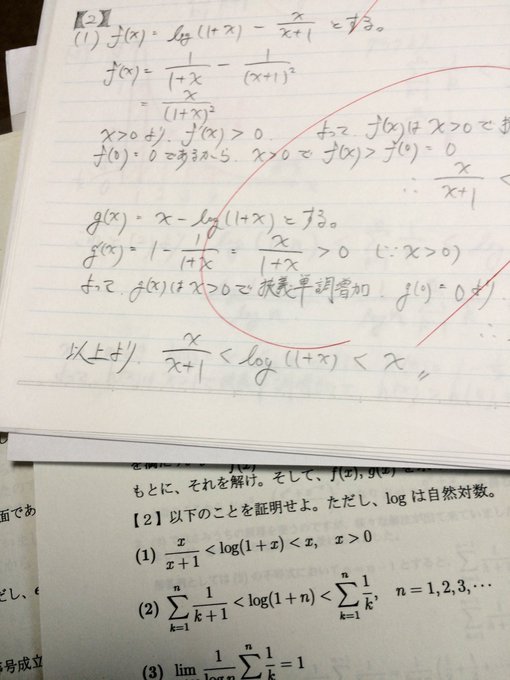 【2】
(1) f(x) = log(1+x) - x/(x+1) とする。
f'(x) = 1/(1+x) - 1/(x+1)²
= x/(1+x)²
x>0 より、f'(x) > 0. よって f(x)は x>0 で
f(0) = 0 であるから x>0 で f(x) > f(0) = 0
∴ x/(x+1) <
g(x) = x - log(1+x) とする。
g'(x) = 1 - 1/(1+x) = x/(1+x) > 0 (∵ x>0)
よって g(x)は x>0 で 狭義単調増加. g(0) = 0 より.
∴
以上より x/(x+1) < log(1+x) < x 〃
もとに、それを解け。そして、f(x), g(x)
【2】以下のことを証明せよ。ただし、log は自然対数。
(1) x/(x+1) < log(1+x) < x, x > 0
(2) ∑_{k=1}^{n} 1/(k+1) < log(1+n) < ∑_{k=1}^{n} 1/k, n = 1, 2, 3, ⋯
(3) lim 1/log n ∑^{n} 1/k = 1
面であ
だし、
号成立